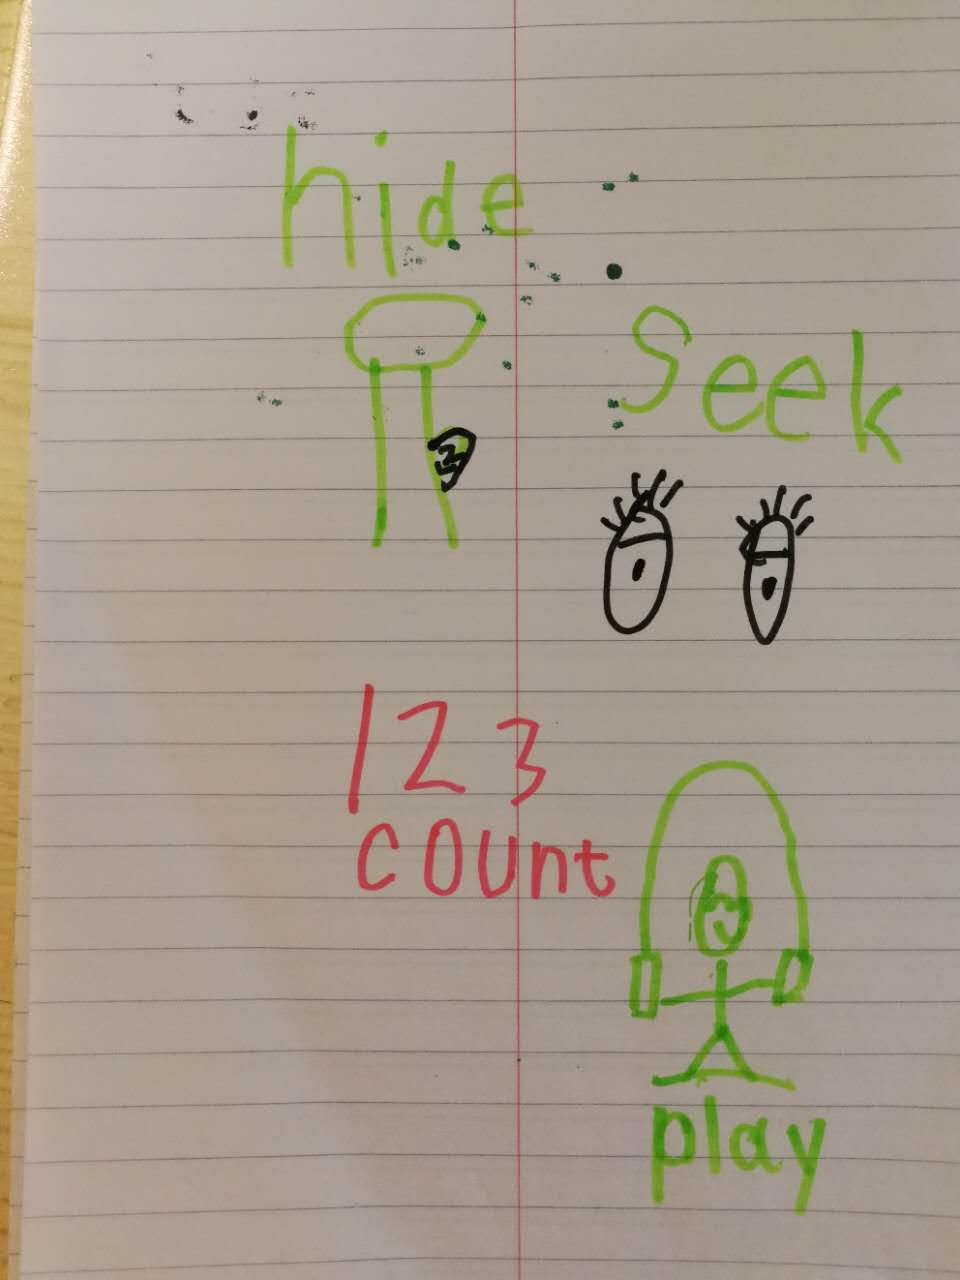 hide
Seek
123
count
play